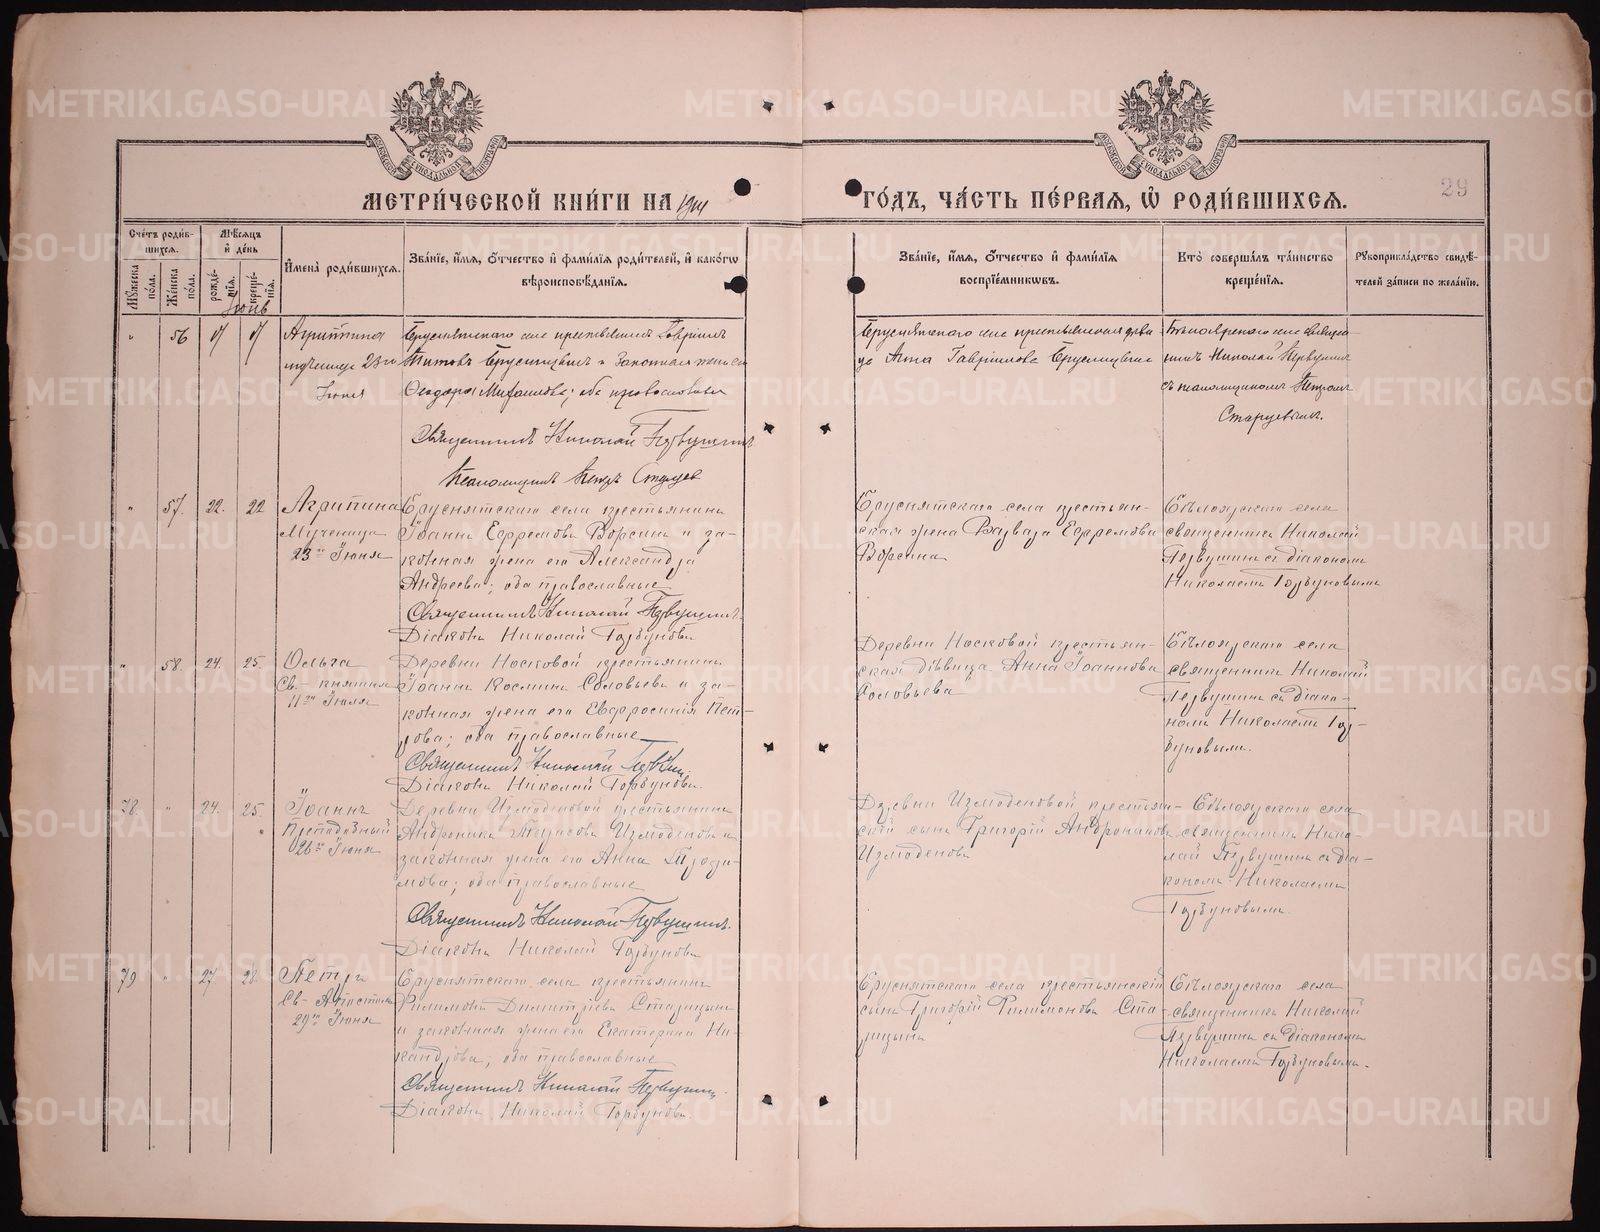 МЕТРИ́ЧЕСКОЙ КНИ́ГИ НА 1911 ГО́ДЪ, ЧА́СТЬ ПЕ́РВАѦ, Ѡ҆ РОДИ́ВШИХСѦ.
29
Сче́тъ роди́в-
шихсѧ.
Мѣ́сѧцъ
и҆ де́нь
И҆мена̀ роди́вшихсѧ.
Зва́нїе, и҆́мѧ, ѻ҆́тчество и҆ фами́лїѧ роди́телей, и҆ како́гѡ
вѣроисповѣ́данїѧ.
Зва́нїе, и҆́мѧ, ѻ҆́тчество и҆ фами́лїѧ
воспрїе́мникѡвъ.
Кто̀ соверша́лъ та́инство
креще́нїѧ.
Рꙋкоприкла́дство свидѣ́-
телей за́писи по жела́нїю.
Мꙋ́жеска
по́ла.
Же́нска
по́ла.
рожде́-
нїѧ.
креще́-
нїѧ.
Іюнь
" 56
Агриппина
мученицы 23го
Іюня
Бруснятскаго села крестьянинъ Гавріилъ
Титовъ Брусницынъ и законная жена его
Ѳеодора Михаилова; оба православные
Священникъ Николай Первушинъ
Псаломщикъ Петръ Старцев
Бруснятскаго села крестьянская дѣви-
ца Анна Гавріилова Брусницына
Бѣлоярскаго села священ-
никъ Николай Первушинъ
съ псаломщикомъ Петромъ
Старцевымъ.
" 57. 22. 22
Агрипина
Мученица
23го Іюня
Бруснятскаго села крестьянинъ
Іоаннъ Ефремовъ Ворсинъ и за-
конная жена его Александра
Андреева; оба православные
Священникъ Николай Первушинъ
Діаконъ Николай Горбуновъ
Бруснятскаго села крестьян-
ская жена Варвара Ефремова
Ворсина
Бѣлоярскаго села
священникъ Николай
Первушинъ съ діакономъ
Николаемъ Горбуновымъ
" 58. 24. 25.
Ольга
Св. княгиня
11го Іюля
Деревни Носковой крестьянинъ
Іоаннъ Косминъ Соловьевъ и за-
конная жена его Евфросинія Пет-
рова; оба православные
Священникъ Николай Первушин
Діаконъ Николай Горбуновъ.
Деревни Носковой крестьян-
ская дѣвица Анна Іоаннова
Соловьева
Бѣлоярскаго села
священникъ Николай
Первушинъ съ діако-
номъ Николаемъ Гор-
буновымъ.
78. " 24. 25.
Іоаннъ
Преподобный
26го Іюня
Деревни Измоденовой крестьянинъ
Андроникъ Тарасовъ Измоденовъ и
законная жена его Анна Троди-
мова; оба православные
Священникъ Николай Первушинъ.
Діаконъ Николай Горбуновъ
Деревни Измоденовой крестьян-
скій сынъ Григорій Андрониковъ
Измоденовъ
Бѣлоярскаго села
священникъ Нико-
лай Первушинъ съ діа-
кономъ Николаемъ
Горбуновымъ.
79 " 27 28.
Петръ
Св. Апостолъ
29го Іюня
Бруснятскаго села крестьянинъ
Филимонъ Димитріевъ Старицынъ
и законная жена его Екатерина Ни-
кандрова; оба православные
Священникъ Николай Первушин
Діаконъ Николай Горбуновъ.
Бруснятскаго села крестьянскій
сынъ Григорій Филимоновъ Ста-
рицынъ
Бѣлоярскаго села
священникъ Николай
Первушинъ съ діакономъ
Николаемъ Горбуновымъ.
METRIKI.GASO-URAL.RU